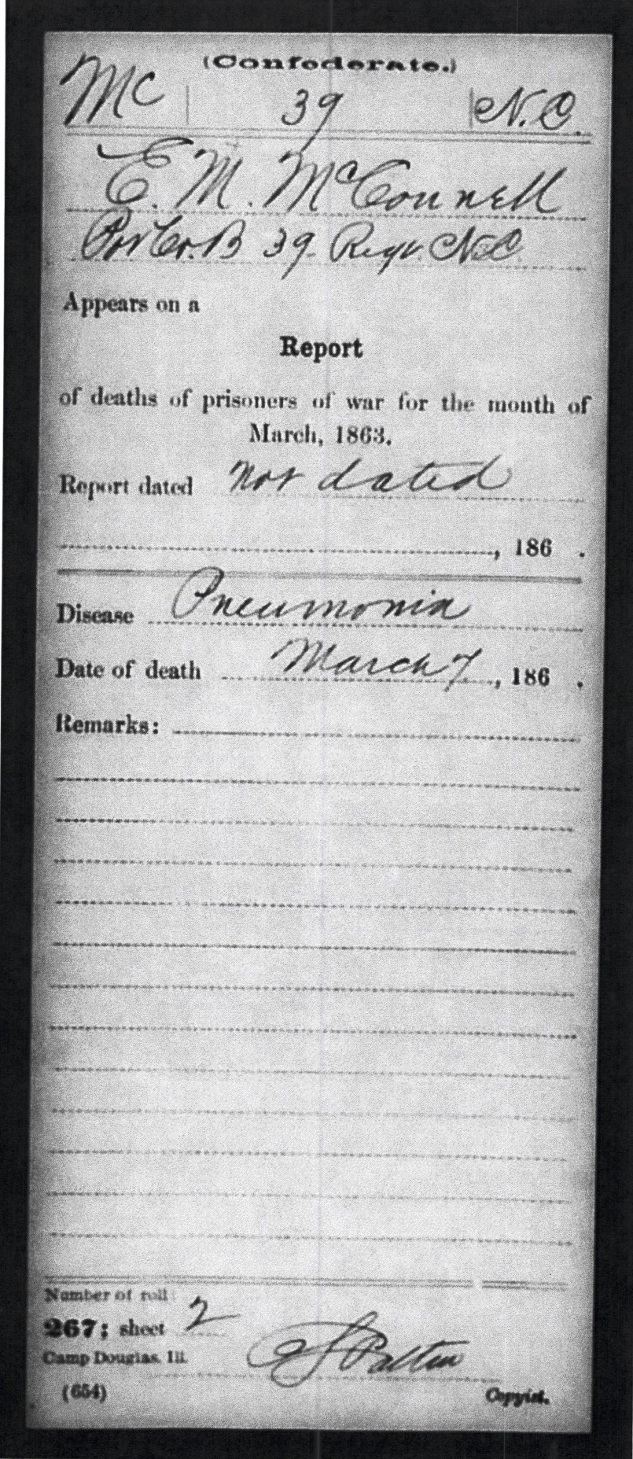 (Confederate.)
Mc | 39 | N.C.
E. M. McConnell
Co. B 39 Regt. N.C.
Appears on a
Report
of deaths of prisoners of war for the month of
March, 1863.
Report dated not dated
, 186 .
Disease Pneumonia
Date of death March 7, 186 .
Remarks:
Number of roll:
267; sheet 2
Camp Douglas, Ill.
Patten
(654) Copyist.